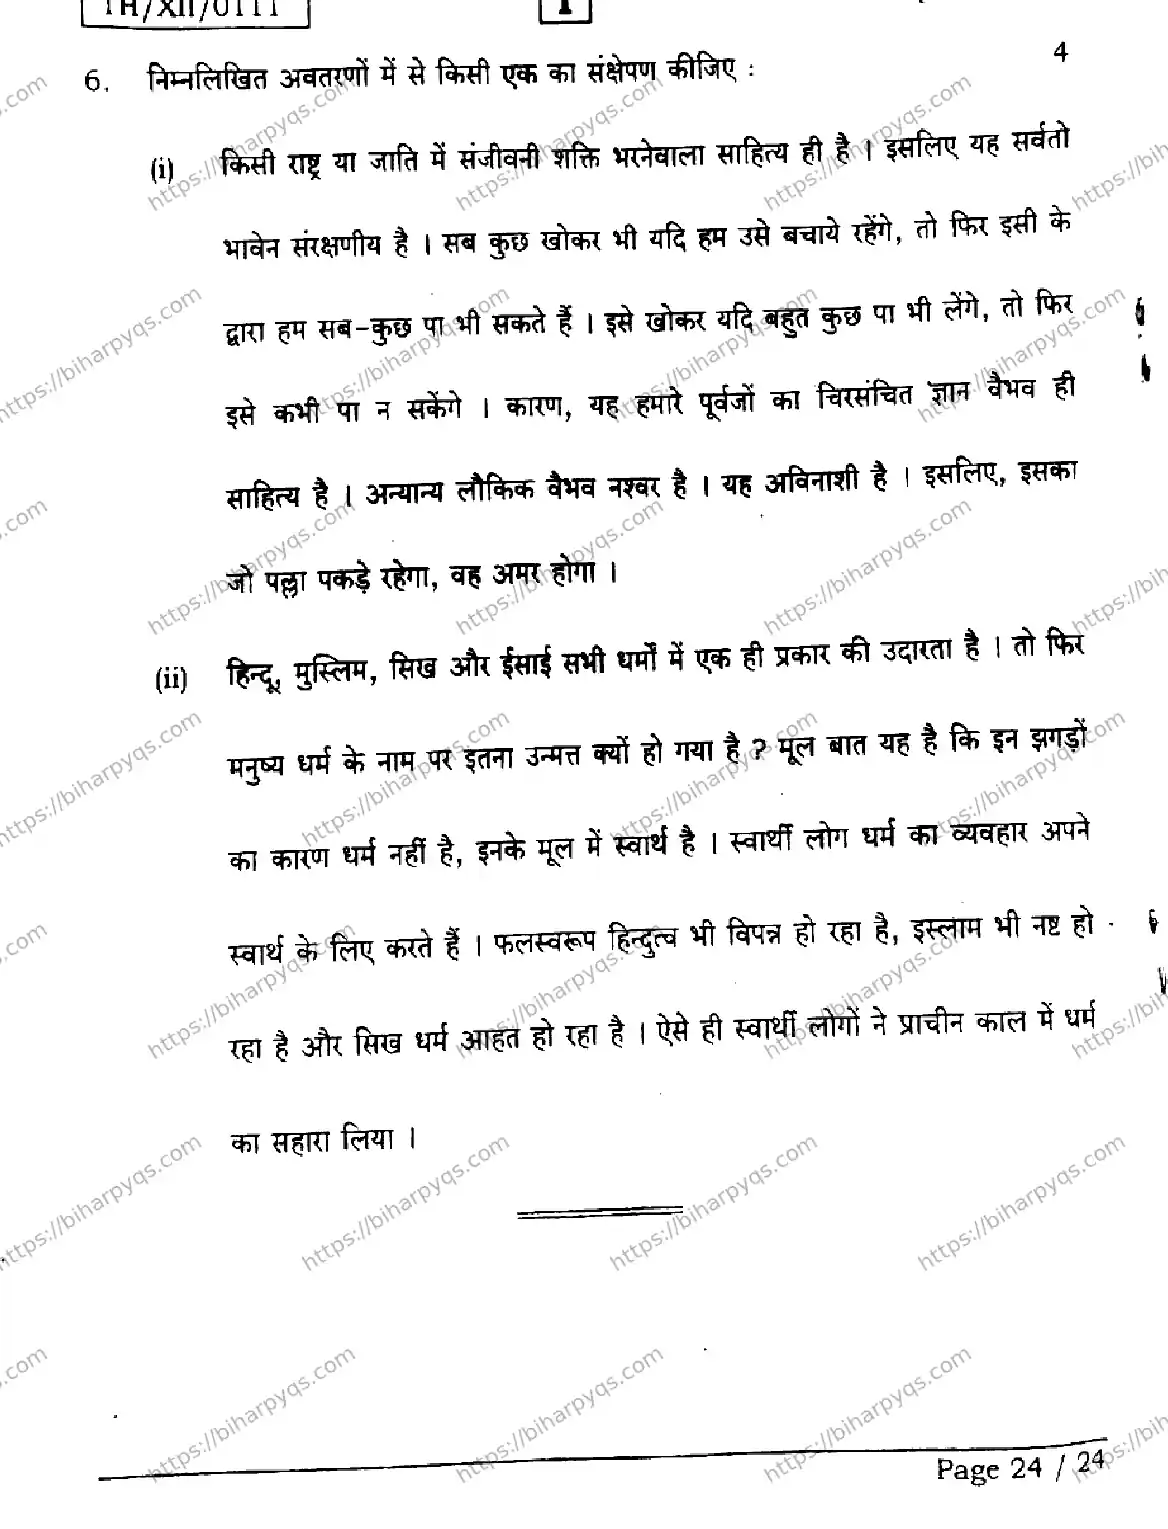 TH/XII/0111
1
4
6. निम्नलिखित अवतरणों में से किसी एक का संक्षेपण कीजिए :
(i) किसी राष्ट्र या जाति में संजीवनी शक्ति भरनेवाला साहित्य ही है । इसलिए यह सर्वतो
भावेन संरक्षणीय है । सब कुछ खोकर भी यदि हम उसे बचाये रहेंगे, तो फिर इसी के
द्वारा हम सब-कुछ पा भी सकते हैं । इसे खोकर यदि बहुत कुछ पा भी लेंगे, तो फिर
इसे कभी पा न सकेंगे । कारण, यह हमारे पूर्वजों का चिरसंचित ज्ञान वैभव ही
साहित्य है । अन्यान्य लौकिक वैभव नश्वर है । यह अविनाशी है । इसलिए, इसका
जो पल्ला पकड़े रहेगा, वह अमर होगा ।
(ii) हिन्दू, मुस्लिम, सिख और ईसाई सभी धर्मों में एक ही प्रकार की उदारता है । तो फिर
मनुष्य धर्म के नाम पर इतना उन्मत्त क्यों हो गया है ? मूल बात यह है कि इन झगड़ों
का कारण धर्म नहीं है, इनके मूल में स्वार्थ है । स्वार्थी लोग धर्म का व्यवहार अपने
स्वार्थ के लिए करते हैं । फलस्वरूप हिन्दुत्व भी विपन्न हो रहा है, इस्लाम भी नष्ट हो
रहा है और सिख धर्म आहत हो रहा है । ऐसे ही स्वार्थी लोगों ने प्राचीन काल में धर्म
का सहारा लिया ।
Page 24 / 24
https://biharpyqs.com